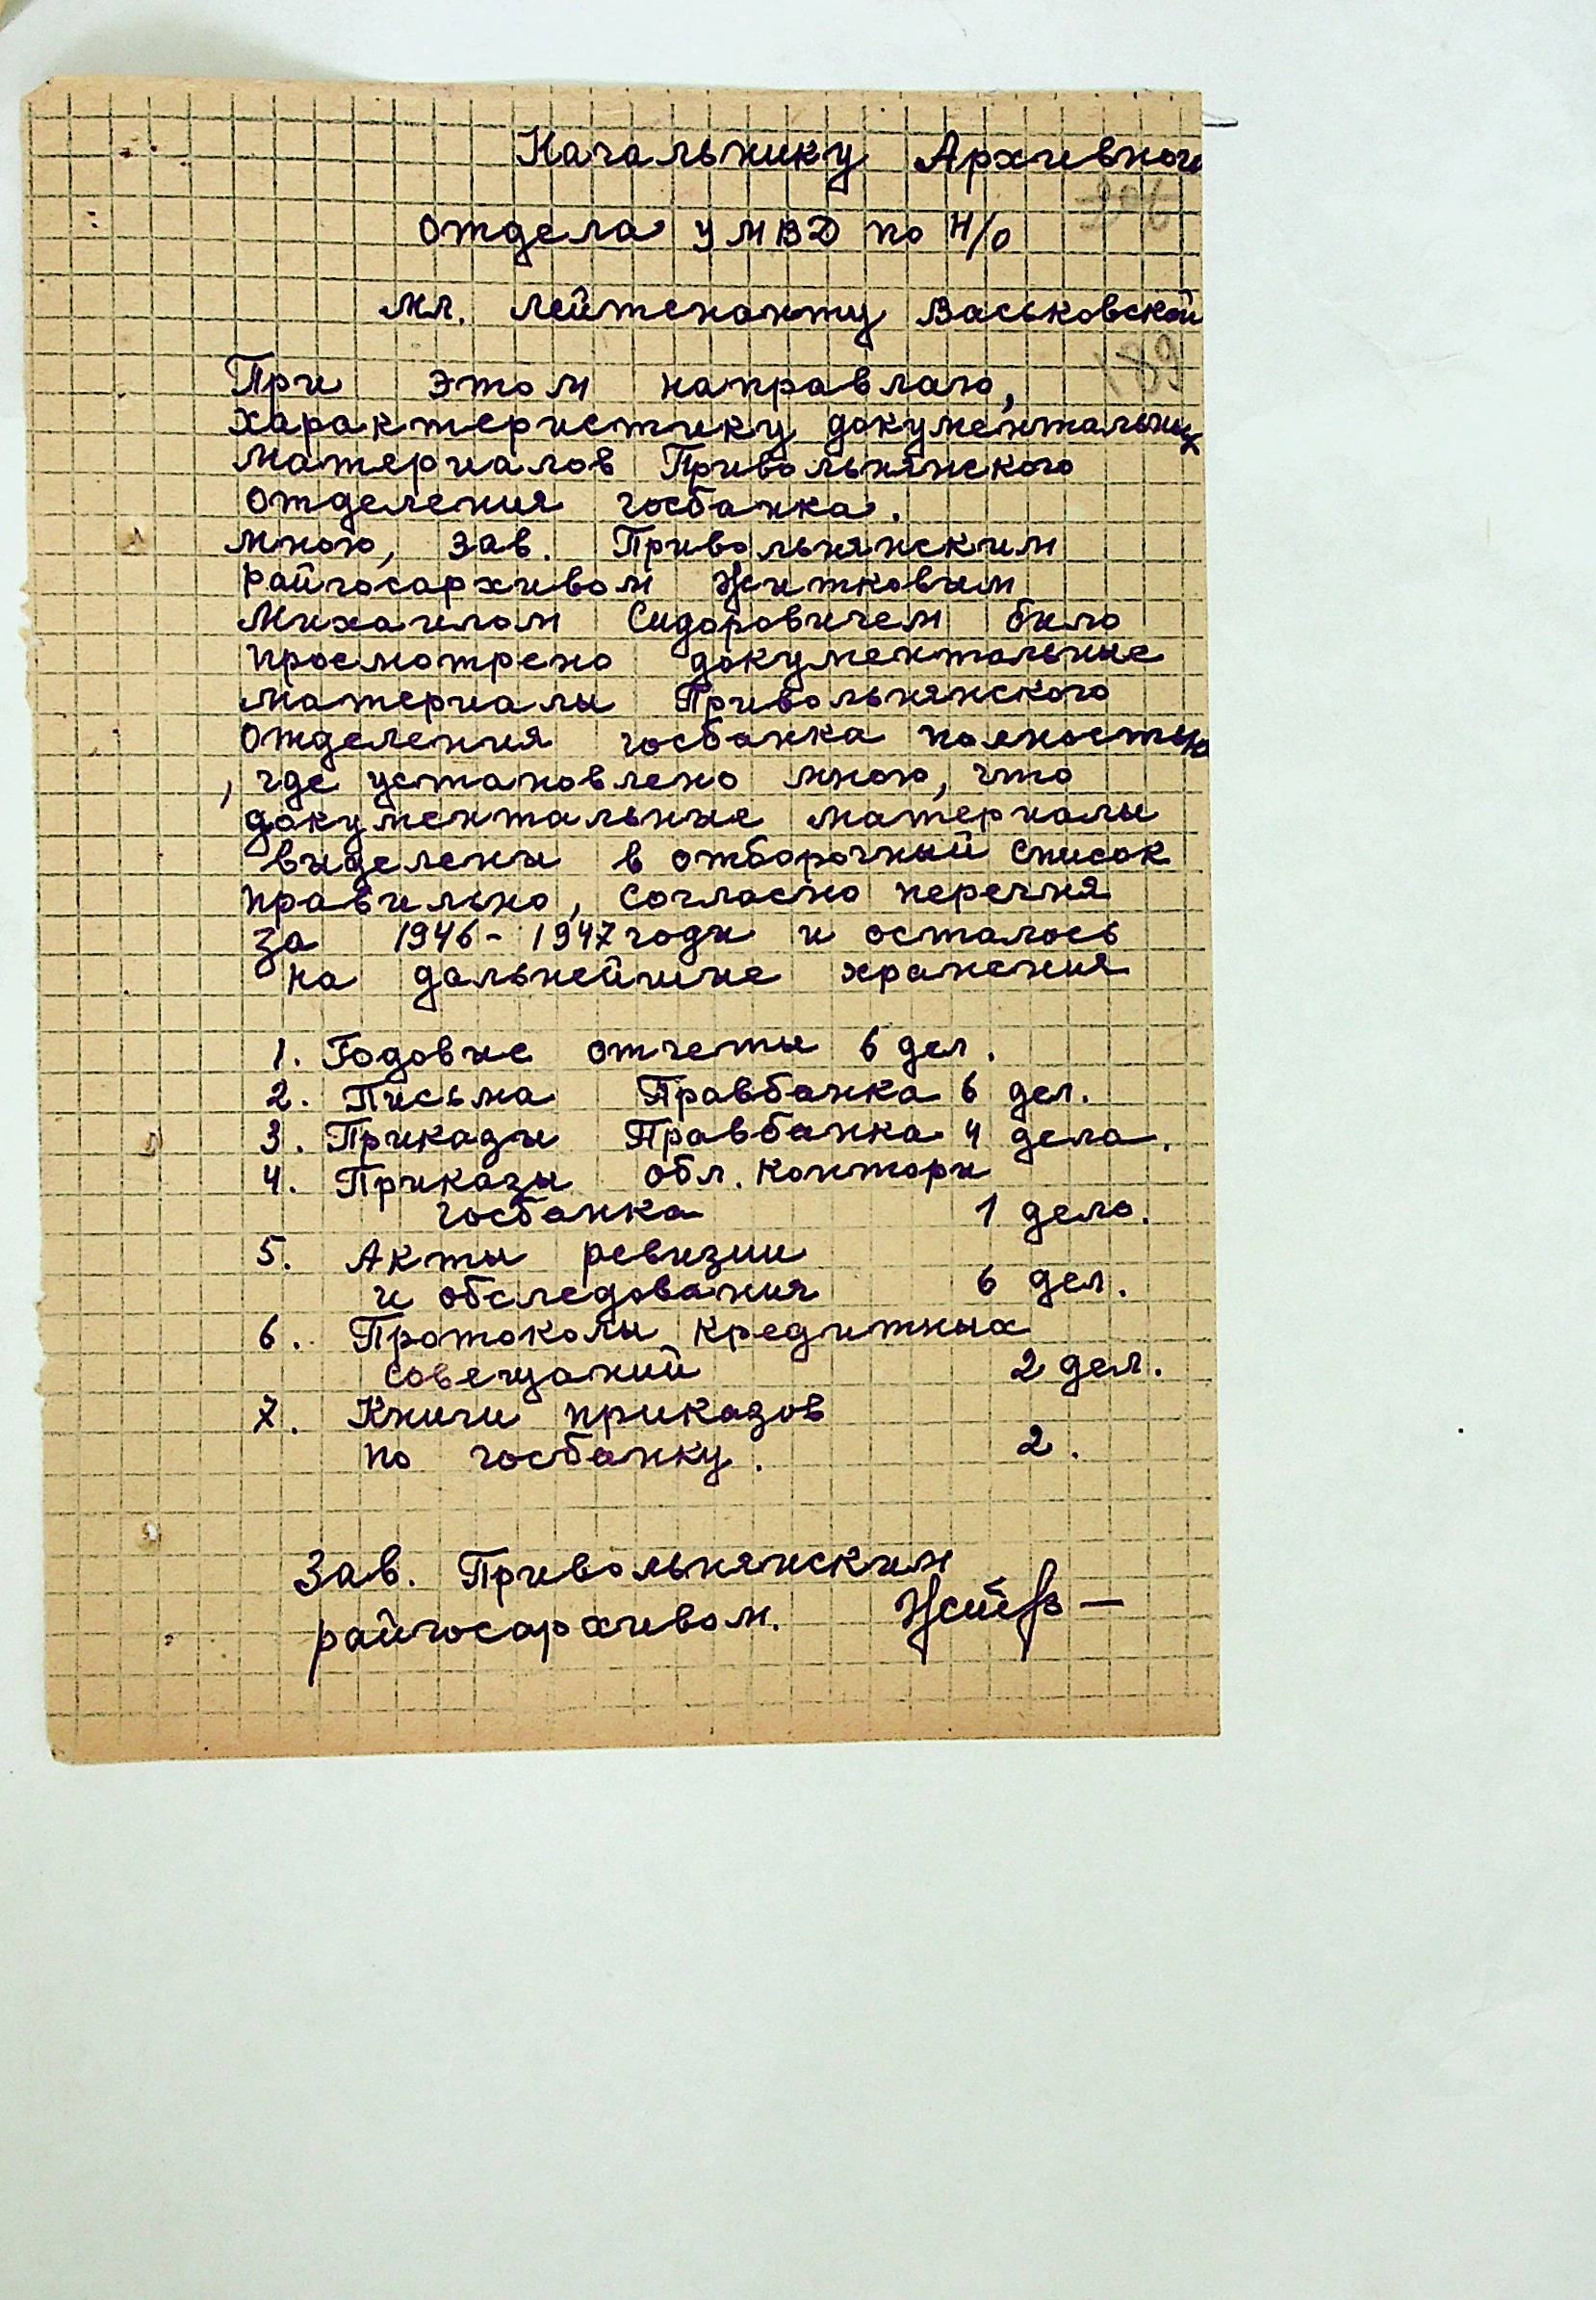 Начальнику Архивного
206
отдела УМВД по Н/О
мл. лейтенанту Васьковской
189
При этом направлаю,
характеристику документальных
материалов Привольнянского
отделения госбанка.
мною, зав. Привольнянским
райгосархивом Житковым
Михаилом Сидоровичем было
просмотрено документальные
материалы Привольнянского
отделения госбанка полностью
, где установлено мною, что
документальные материалы
выделены в отборочный список
правильно, согласно перечня
за 1946-1947 годы и осталось
на дальнейшие хранения
1. Годовые отчеты 6 дел.
2. Письма Правбанка 6 дел.
3. Приказы Правбанка 4 дела.
4. Приказы обл. конторы
госбанка 1 дело.
5. Акты ревизии
и обследования 6 дел.
6. Протоколы кредитных
совещаний 2 дел.
7. Книги приказов
по госбанку. 2.
Зав. Привольнянским
райгосархивом.